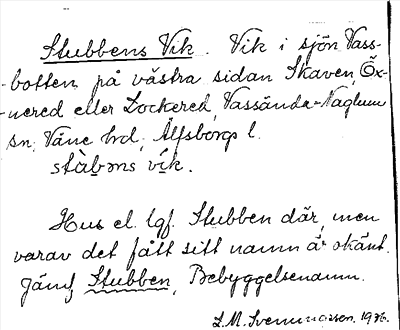 Stubbens Vik. Vik i sjön Vass-
-botten, på västra sidan Skaven, Öx-
-nered eller Lockered, Vassända-Naglum
sn, Väne hrd, Älfsborgs l.
Hus el. lgf. Stubben där, men
varav det fått sitt namn är okänt.
Jämf Stubben, Bebyggelsenamn.
L.M. 1936.